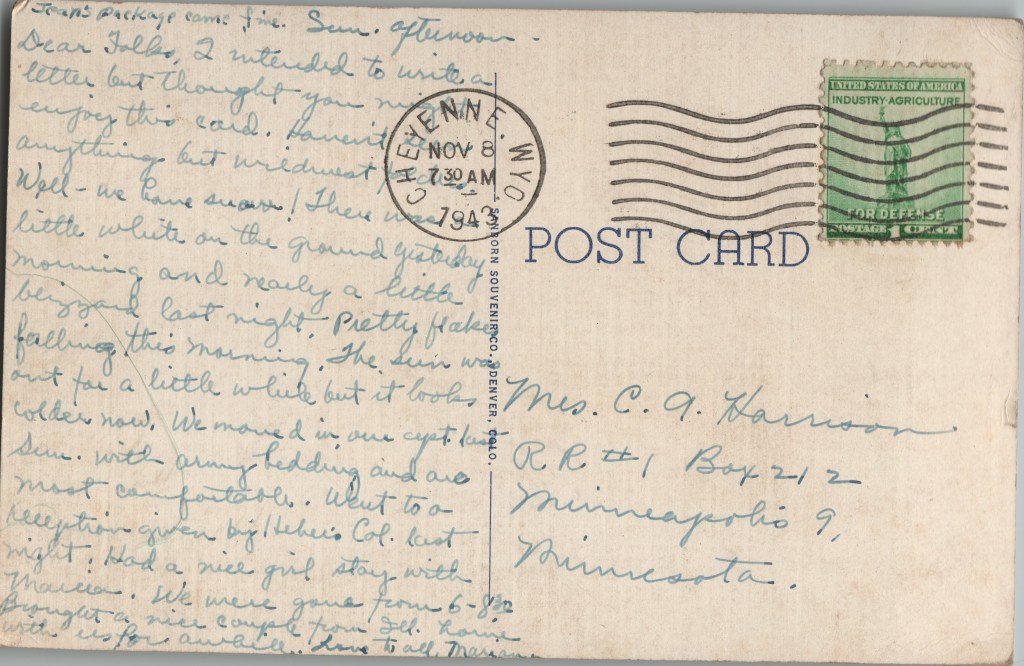 Jean's package came fine. Sun. afternoon -
Dear Folks, I intended to write a
letter but thought you might
enjoy this card. Haven't
anything but midwest
Well - we have snow! There was
little white on the ground yesterday
morning and nearly a little
blizzard last night. Pretty flakes
falling this morning. The sun was
out for a little while but it looks
colder now. We moved in our apt. last
Sun. with army bedding and are
most comfortable. Went to a
reception given by Heber's Col. last
night. Had a nice girl stay with
Marcia. We were gone from 6-8:30
Brought a nice couple from Ill. home
with us for awhile. Love to all, Marian.
CHEYENNE. WYO
NOV 8
7 30 AM
1943
SANBORN SOUVENIR CO., DENVER, COLO.
POST CARD
UNITED STATES OF AMERICA
INDUSTRY-AGRICULTURE
FOR DEFENSE
POSTAGE 1 CENT
Mrs. C. A. Harrison
R R #1 Box 212
Minneapolis 9,
Minnesota.